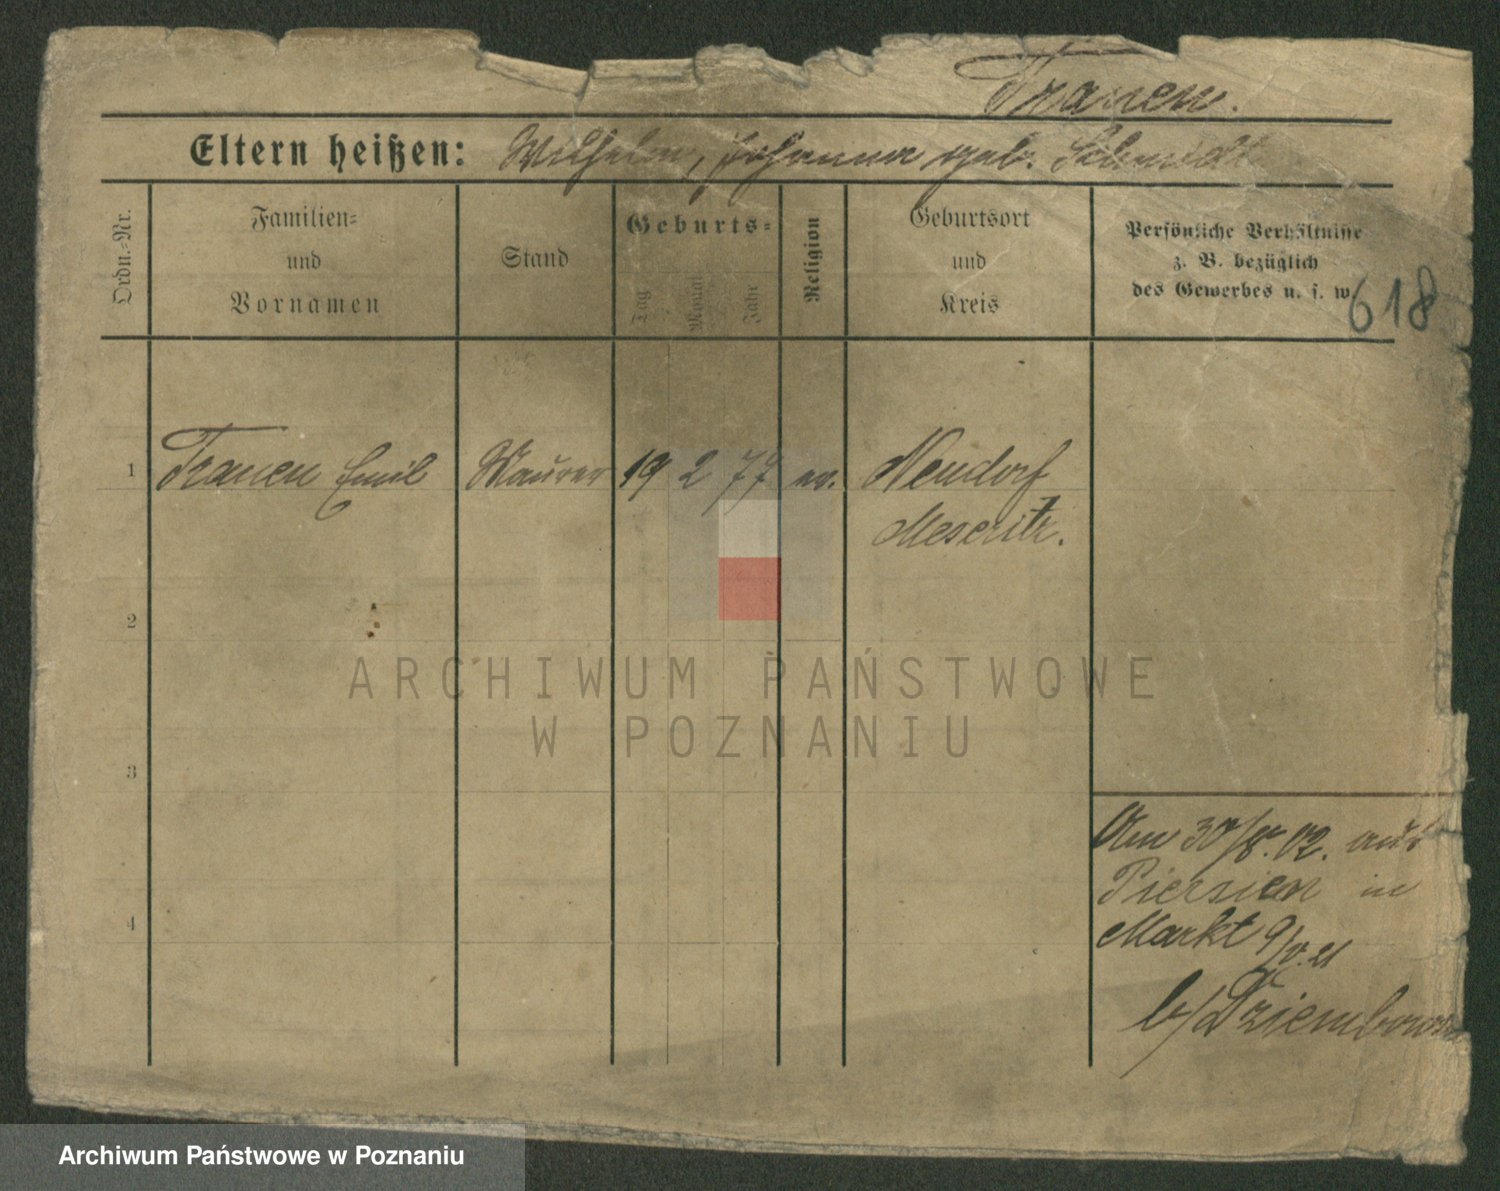 Franen.
Eltern heißen: Wilhelm, Johanna geb. Schmidt
Ordn.-Nr.
Familien-
und
Vornamen
Stand
Geburts-
Tag
Monat
Jahr
Religion
Geburtsort
und
Kreis
Persönliche Verhältnisse
z. B. bezüglich
des Gewerbes u. s. w.
618
1 Franen Emil Maurer 19 2 77 ev. Neudorf
Meseritz.
2
3
4
Am 30/8. 02. aus
in
Markt 9/
b/Dziembowsk
ARCHIWUM PAŃSTWOWE
W POZNANIU
Archiwum Państwowe w Poznaniu